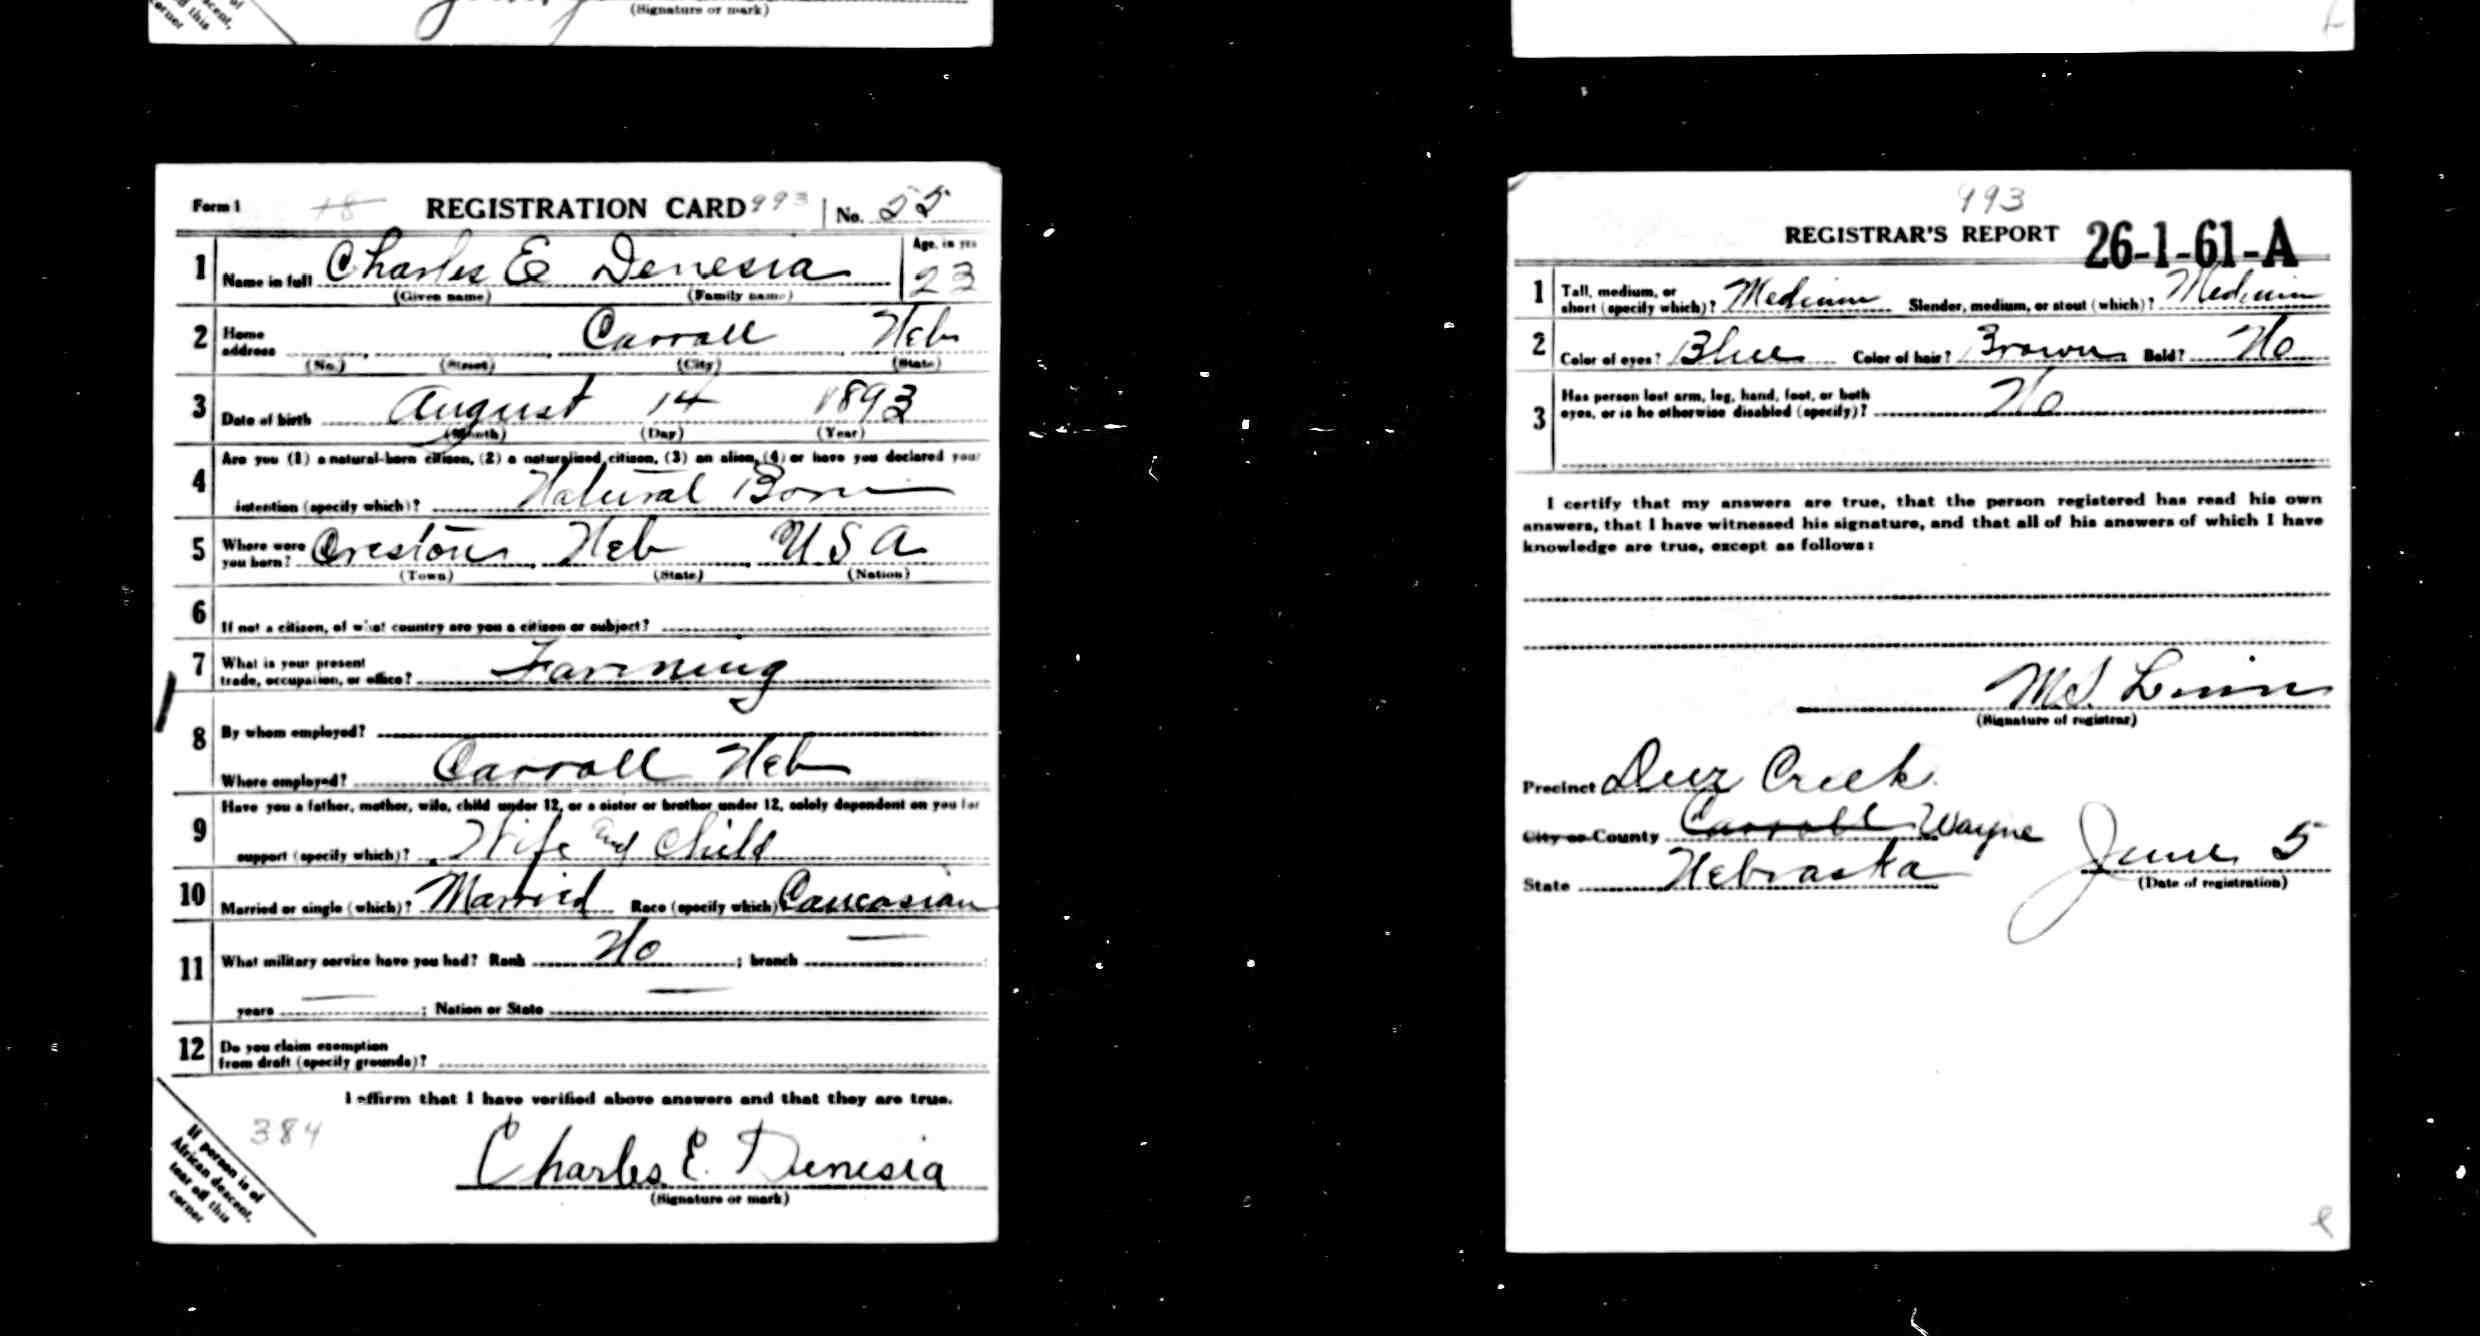 (Signature or mark)
Form 1 18 REGISTRATION CARD 993 No. 55
1 Name in full Charles E Denesia Age, in yrs 23
(Given name) (Family name)
2 Home address Carroll Neb
(No.) (Street) (City) (State)
3 Date of birth August 14 1893
(Month) (Day) (Year)
4 Are you (1) a natural-born citizen, (2) a naturalized citizen, (3) an alien, (4) or have you declared your
intention (specify which)? Natural Born
5 Where were you born? Creston Neb USA
(Town) (State) (Nation)
6 If not a citizen, of what country are you a citizen or subject?
7 What is your present
trade, occupation, or office? Farming
8 By whom employed?
Where employed? Carroll Neb
9 Have you a father, mother, wife, child under 12, or a sister or brother under 12, solely dependent on you for
support (specify which)? Wife and Child
10 Married or single (which)? Married Race (specify which) Caucasian
11 What military service have you had? Rank No ; branch —
years — ; Nation or State —
12 Do you claim exemption
from draft (specify grounds)?
I affirm that I have verified above answers and that they are true.
384
Charles E. Denesia
(Signature or mark)
If person is of
African descent,
tear off this
corner
993
REGISTRAR'S REPORT 26-1-61-A
1 Tall, medium, or
short (specify which)? Medium Slender, medium, or stout (which)? Medium
2 Color of eyes? Blue Color of hair? Brown Bald? No
3 Has person lost arm, leg, hand, foot, or both
eyes, or is he otherwise disabled (specify)? No
I certify that my answers are true, that the person registered has read his own
answers, that I have witnessed his signature, and that all of his answers of which I have
knowledge are true, except as follows:
M.S. Linn
(Signature of registrar)
Precinct Deer Creek
City or County Carroll Wayne
State Nebraska June 5
(Date of registration)